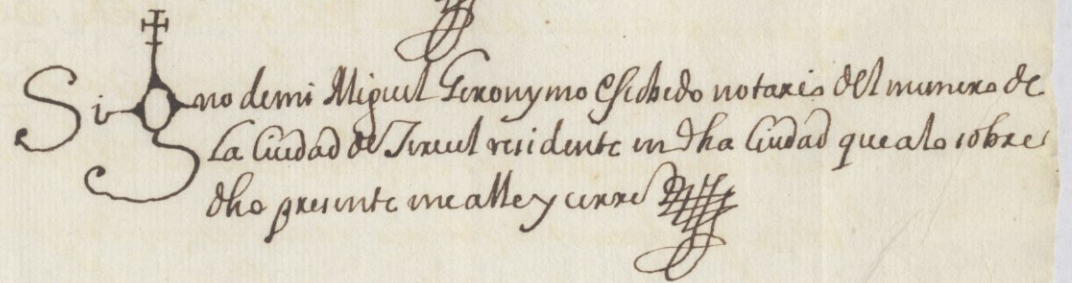 Signo de mi Miguel Geronymo Escobedo notario del numero de
la Ciudad de Teruel residente en dha Ciudad que a lo sobre
dho presente me alle y cerre